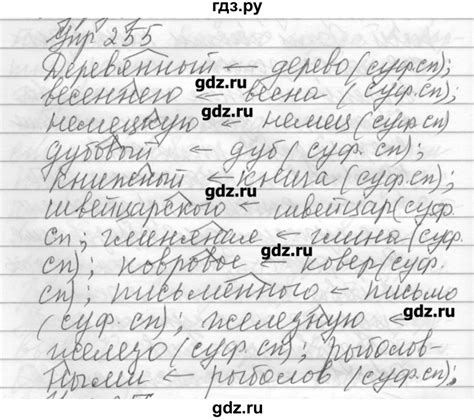 гдз.ру
Упр 255
Деревянный ← дерево (суф.сп);
весеннего ← весна (суф.сп);
немецкую ← немец (суф.сп)
дубовый ← дуб (суф. сп);
книжный ← книга (суф. сп);
швейцарского ← швейцар (суф.
сп; глиняные ← глина (суф.
сп); ковровое ← ковер (суф.
сп); письменного ← письмо
(суф. сп); железную ←
железо (суф. сп); рыболов-
ными ← рыболов (суф. сп);
gdz.ru
gdz.ru
gdz.ru
gdz.ru
gdz.ru
gdz.ru
gdz.ru
gdz.ru
gdz.ru